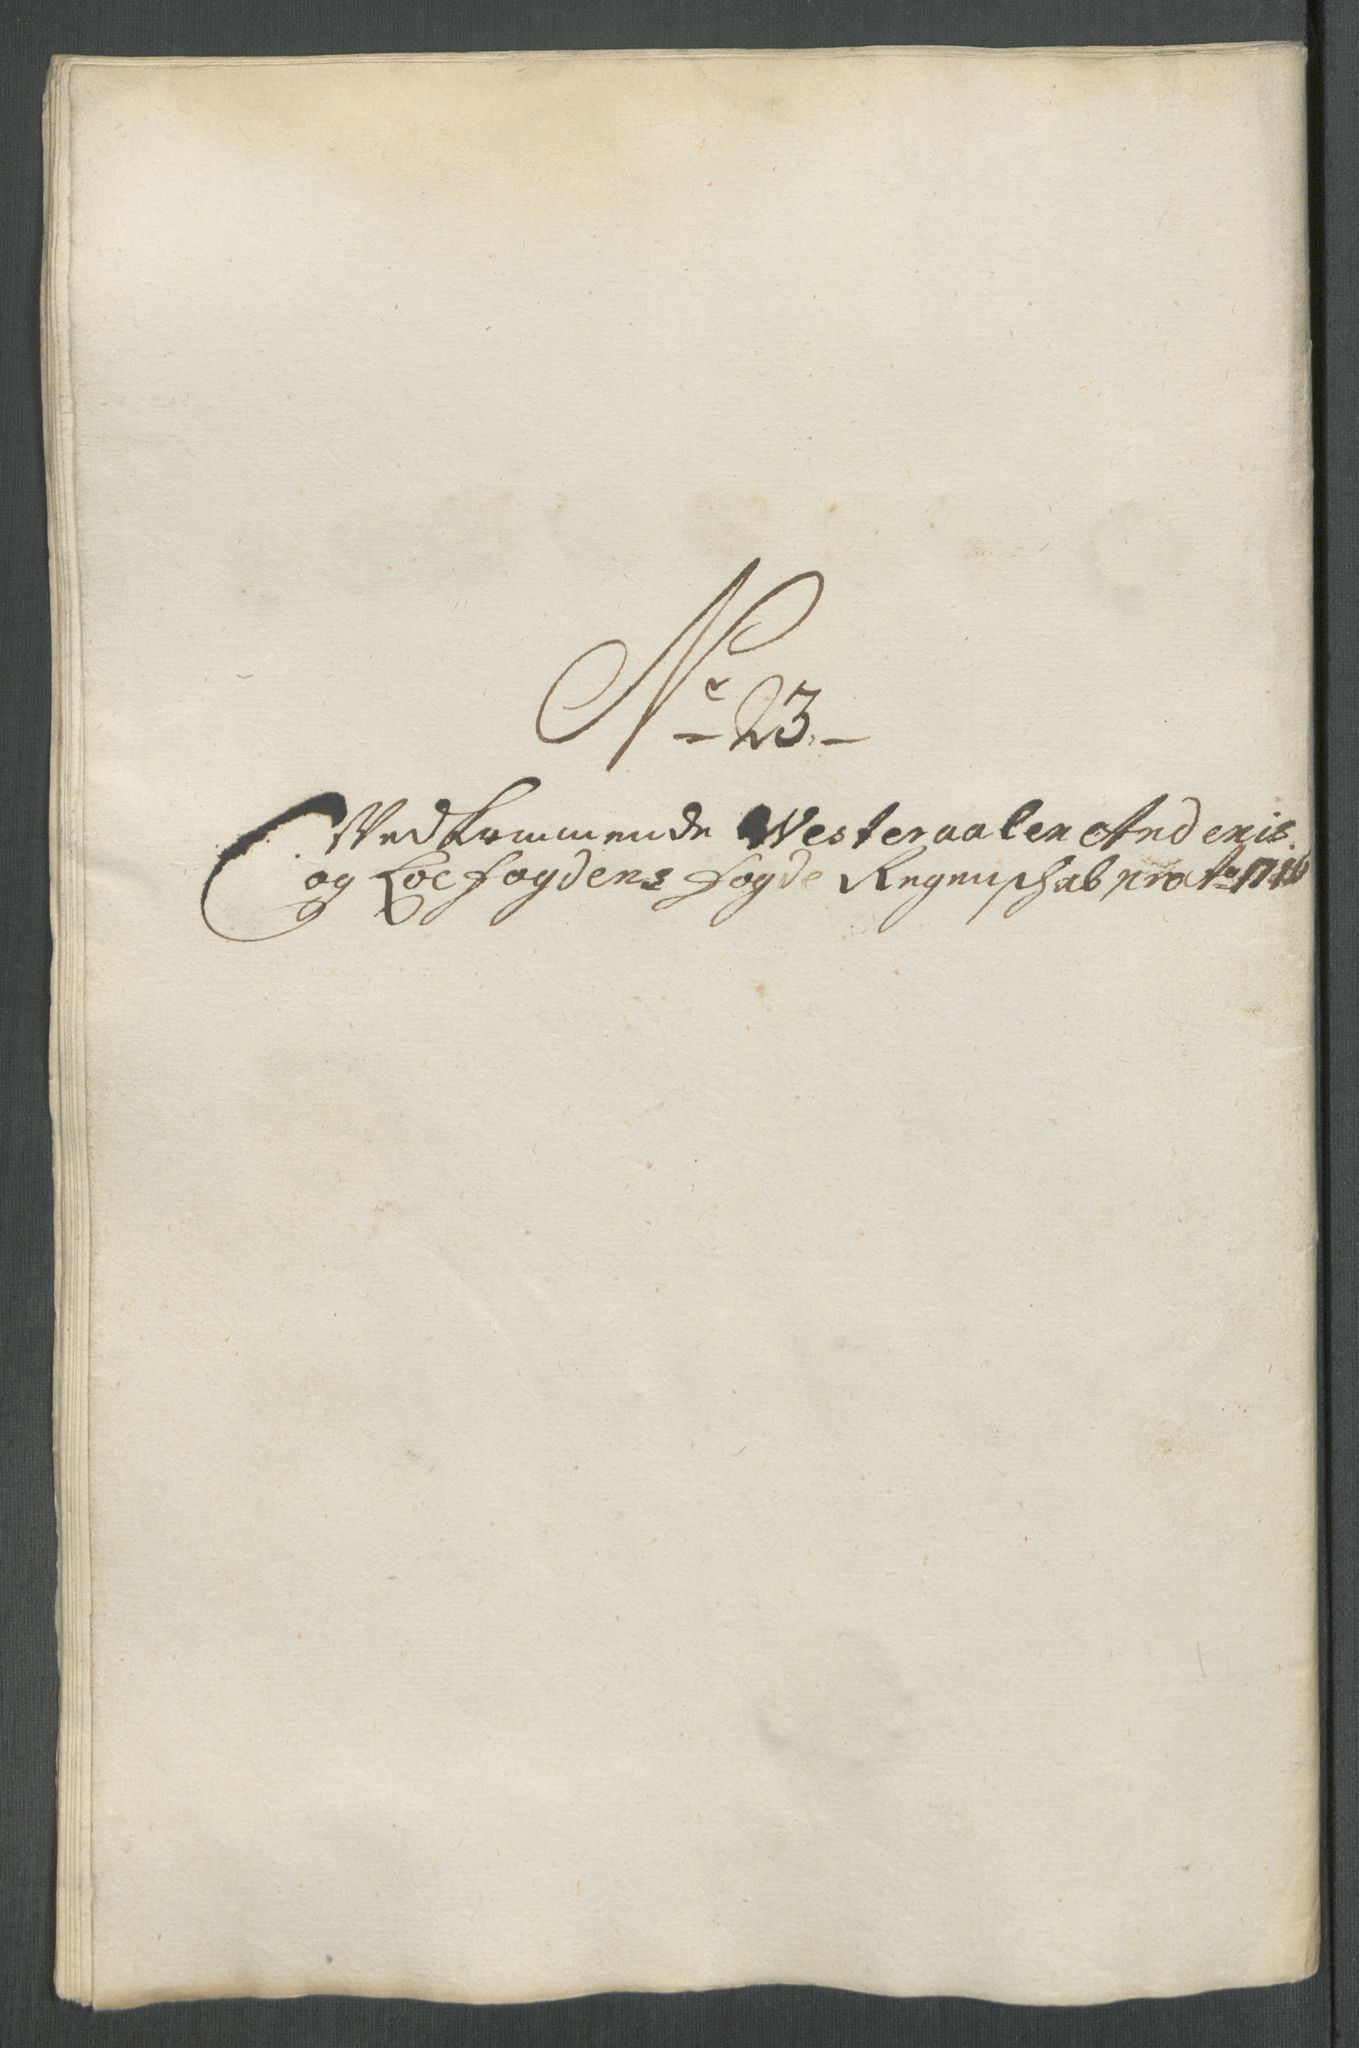 No 23.
Vedkommende Westeraalen Andenis
og Lofodens Fogde Regnschab pro Ao